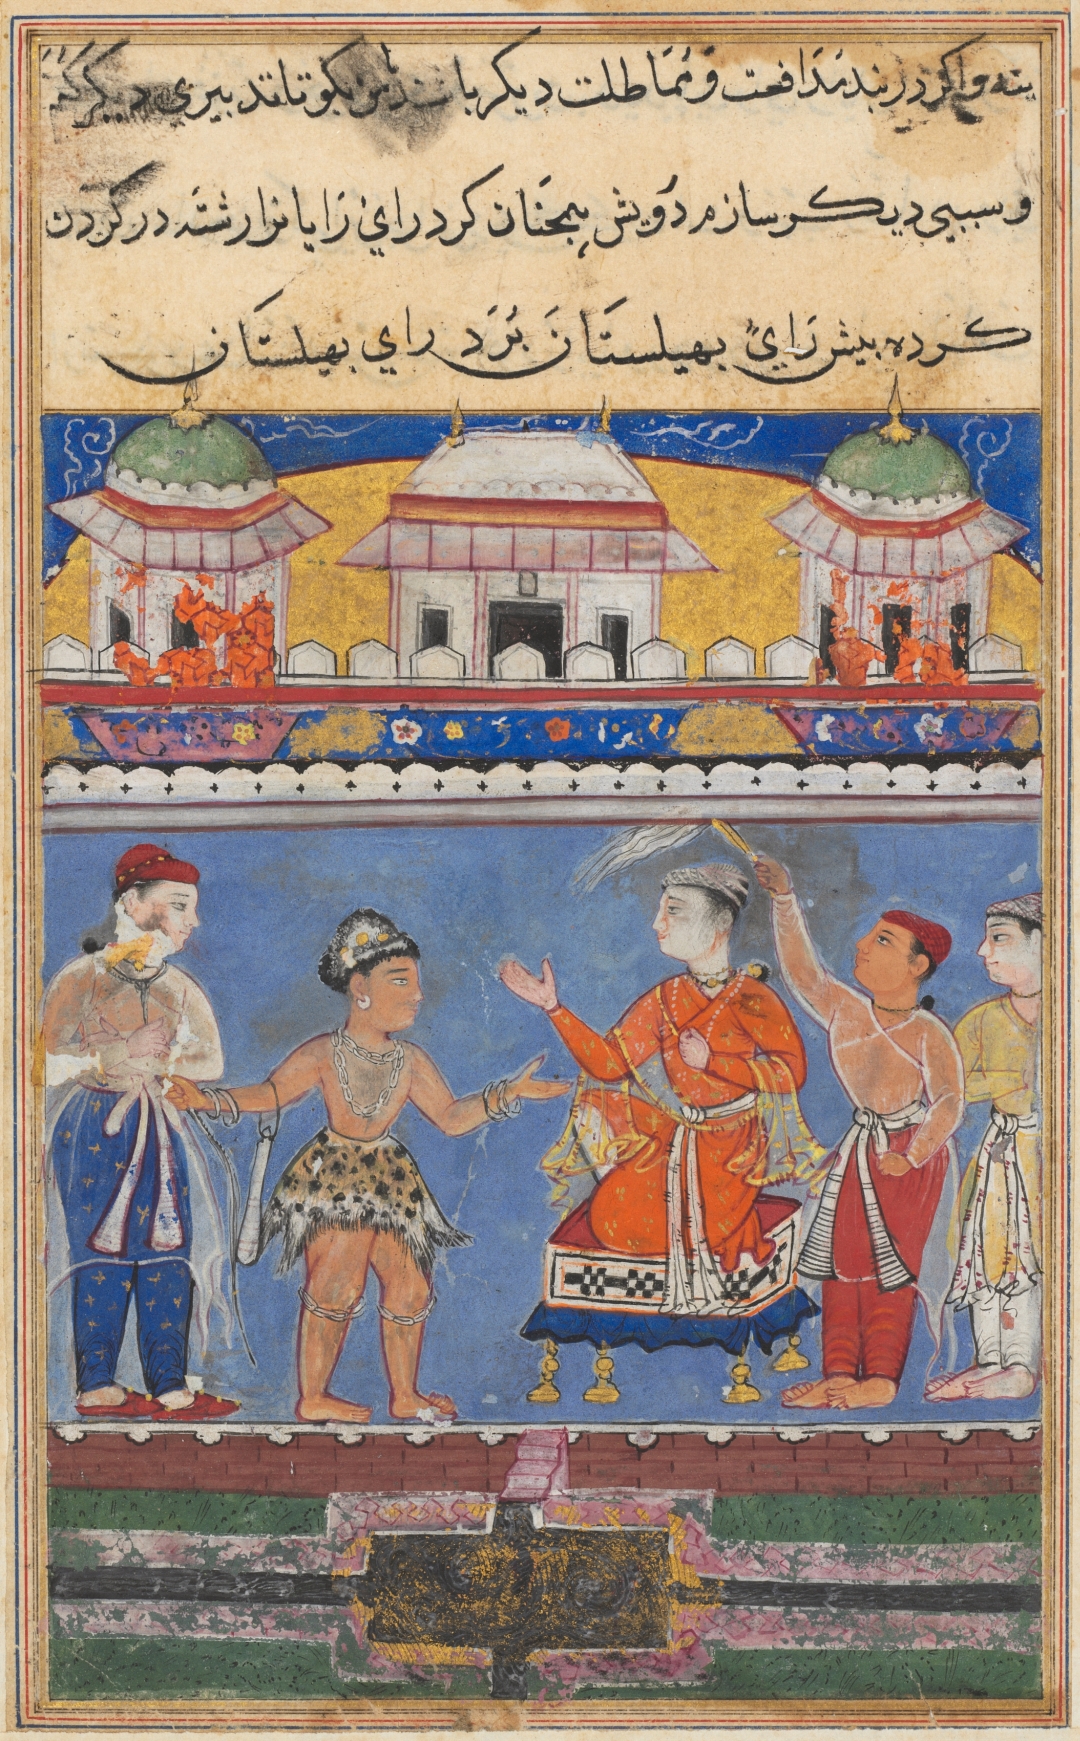 ینه و اکر در بند مدافعت و مماطلت دیکر باشد بکو تا تدبیری دیکر
و سببی دیکر سازم درویش همچنان کرد رای را یا بزار رشته در کردن
کرده بیش رای بهیلستان برد رای بهیلستان